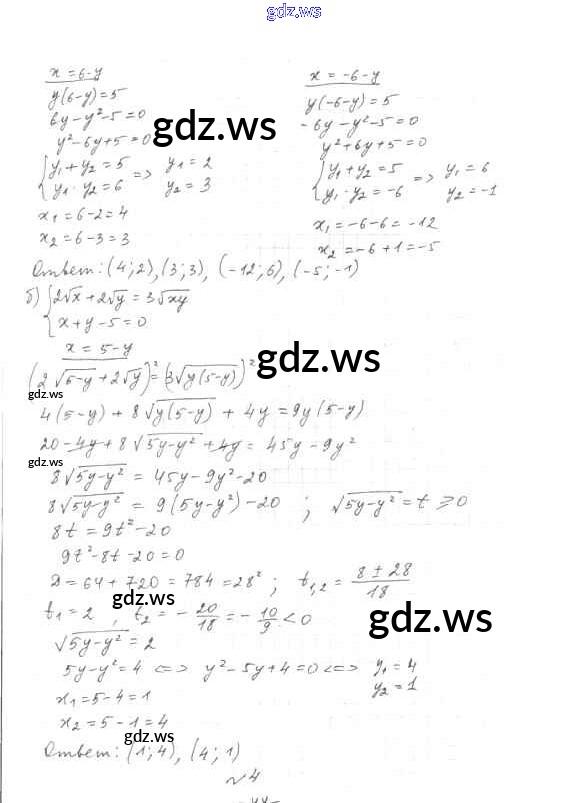 gdz.ws
x = 6-y
y(6-y) = 5
6y - y² - 5 = 0
y² - 6y + 5 = 0
{ y₁ + y₂ = 5
y₁ · y₂ = 6 => y₁ = 2
y₂ = 3
x₁ = 6-2 = 4
x₂ = 6-3 = 3
x = -6-y
y(-6-y) = 5
-6y - y² - 5 = 0
y² + 6y + 5 = 0
{ y₁ + y₂ = 5
y₁ · y₂ = -6 => y₁ = 6
y₂ = -1
x₁ = -6-6 = -12
x₂ = -6+1 = -5
gdz.ws
Ответ: (4; 2), (3; 3), (-12; 6), (-5; -1)
б) { 2√x + 2√y = 3√xy
x + y - 5 = 0
x = 5-y
gdz.ws
(2√5-y + 2√y)² = (3√y(5-y))²
gdz.ws
4(5-y) + 8√y(5-y) + 4y = 9y(5-y)
20 - 4y + 8√5y-y² + 4y = 45y - 9y²
gdz.ws
8√5y-y² = 45y - 9y² - 20
8√5y-y² = 9(5y-y²) - 20 ; √5y-y² = t ⩾ 0
8t = 9t² - 20
9t² - 8t - 20 = 0
D = 64 + 720 = 784 = 28² ; t₁,₂ = (8 ± 28)/18
gdz.ws
t₁ = 2 , t₂ = - 20/18 = - 10/9 < 0
gdz.ws
√5y-y² = 2
5y - y² = 4 <=> y² - 5y + 4 = 0 <=> y₁ = 4
y₂ = 1
x₁ = 5-4 = 1
x₂ = 5-1 = 4
gdz.ws
Ответ: (1; 4), (4; 1)
№4